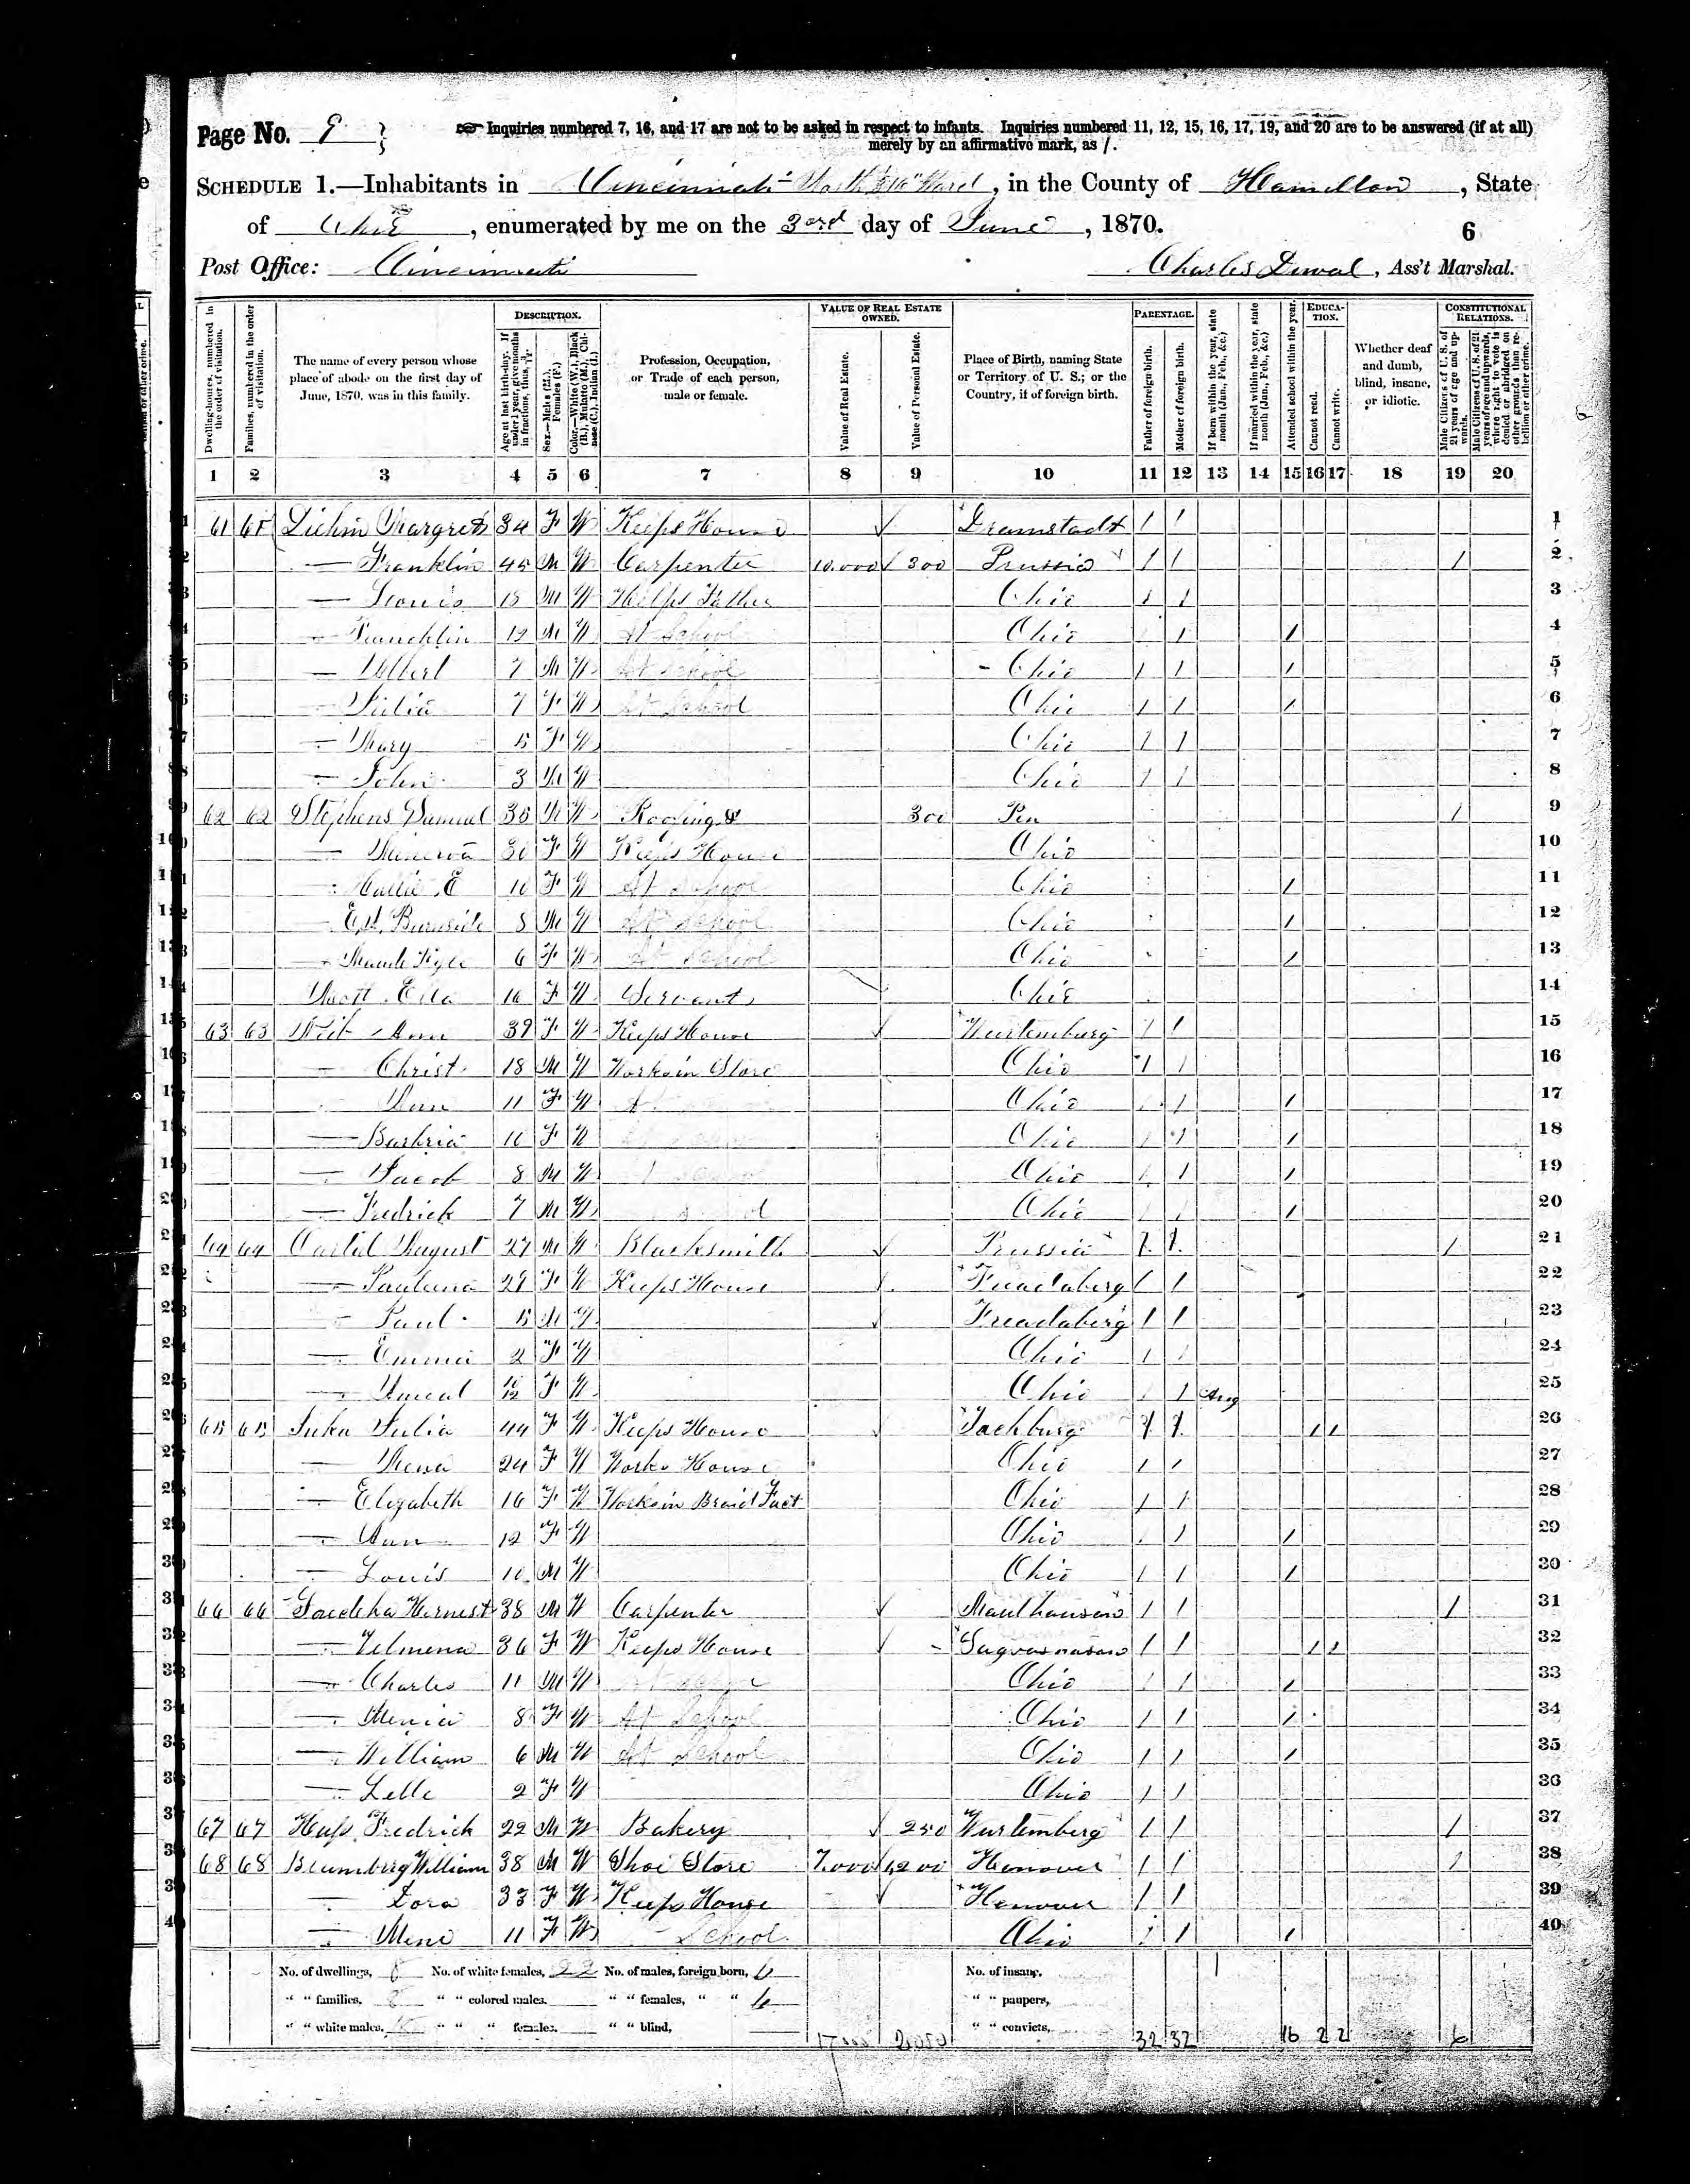 Page No. 9
Inquiries numbered 7, 16, and 17 are not to be asked in respect to infants. Inquiries numbered 11, 12, 15, 16, 17, 19, and 20 are to be answered (if at all)
merely by an affirmative mark, as /.
SCHEDULE 1.—Inhabitants in Cincinnati Ward, in the County of Hamilton, State
of Ohio, enumerated by me on the 3rd day of June, 1870.
6
Post Office: Cincinnati
Charles Duval, Ass't Marshal.
Dwelling-houses, numbered in the order of visitation.
Families, numbered in the order of visitation.
The name of every person whose place of abode on the first day of June, 1870, was in this family.
DESCRIPTION.
Age at last birth-day. If under 1 year, give months in fractions, thus, 3/12
Sex.—Males (M.), Females (F.)
Color.—White (W.), Black (B.), Mulatto (M.), Chinese (C.), Indian (I.)
Profession, Occupation, or Trade of each person, male or female.
VALUE OF REAL ESTATE OWNED.
Value of Real Estate.
Value of Personal Estate.
Place of Birth, naming State or Territory of U. S.; or the Country, if of foreign birth.
PARENTAGE.
Father of foreign birth.
Mother of foreign birth.
If born within the year, state month (Jan., Feb., &c.)
If married within the year, state month (Jan., Feb., &c.)
Attended school within the year.
EDUCATION.
Cannot read.
Cannot write.
Whether deaf and dumb, blind, insane, or idiotic.
CONSTITUTIONAL RELATIONS.
Male Citizens of U. S. of 21 years of age and upwards.
Male Citizens of U. S. of 21 years of age and upwards, where right to vote is denied or abridged on other grounds than rebellion or other crime.
1 2 3 4 5 6 7 8 9 10 11 12 13 14 15 16 17 18 19 20
61 61 Margret 34 F W Keeps House 1 1 1
— Franklin 45 M W Carpenter 10.000 300 Prussia 1 1 1 2
— Louis 15 M W Helps Father Ohio 1 1 3
— Francklin 12 M W At School Ohio 1 1 4
— Albert 7 M W At School Ohio 1 1 1 5
— Julia 7 F W At School Ohio 1 1 1 6
— Mary 5 F W Ohio 1 1 7
— John 3 M W Ohio 1 1 8
62 62 Stephens Samuel 35 M W Roofing 300 Pen 1 9
— Minerva 30 F W Keeps House Ohio 10
— Hallie E 10 F W At School Ohio 1 11
— Ed. Burnside 8 M W At School Ohio 1 12
— Maude 6 F W At School Ohio 1 13
Ella 16 F W Servant Ohio 14
63 63 Ann 39 F W Keeps House Wurtemburg 1 1 15
— Christ 18 M W Works in Store Ohio 1 1 16
— Ann 11 F W Ohio 1 1 17
— Barbria 10 F W Ohio 1 1 1 18
— Jacob 8 M W Ohio 1 1 1 19
— Fredrick 7 M W Ohio 1 20
64 64 August 27 M W Blacksmith Prussia 1 1 1 21
— Paulena 27 F W Keeps House 1 1 22
— Paul 5 M W 1 1 23
— Emma 2 F W Ohio 1 1 24
— 10/12 F W Ohio 1 Aug 25
65 65 Julia 44 F W Keeps House 1 1 1 1 26
— Mena 24 F W Works House Ohio 1 1 27
— Elizabeth 16 F W Works in Braid Fact Ohio 1 1 28
— Ann 12 F W Ohio 1 1 29
— Louis 10 M W Ohio 1 1 1 30
66 66 Hernest 38 M W Carpenter Maulhausen 1 1 1 31
— Velmena 36 F W Keeps House 1 1 1 1 32
— Charles 11 M W Ohio 1 1 1 33
— Menia 8 F W At School Ohio 1 1 1 34
— William 6 M W At School Ohio 1 1 1 35
— Lelle 2 F W Ohio 1 1 36
67 67 Fredrick 22 M W Bakery 250 Wurtemberg 1 1 1 37
68 68 Blumberg William 38 M W Shoe Store 7.000 1200 Hanover 1 1 1 38
— Dora 33 F W Keeps House Hanover 1 1 39
— Mene 11 F W School Ohio 1 1 1 40
No. of dwellings, 8 No. of white females, 22 No. of males, foreign born, 6 No. of insane,
" " families, 8 " " colored males, " " females, " " 6 " " paupers,
" " white males, " " " females, " " blind, " " convicts, 32 32 16 2 2 6